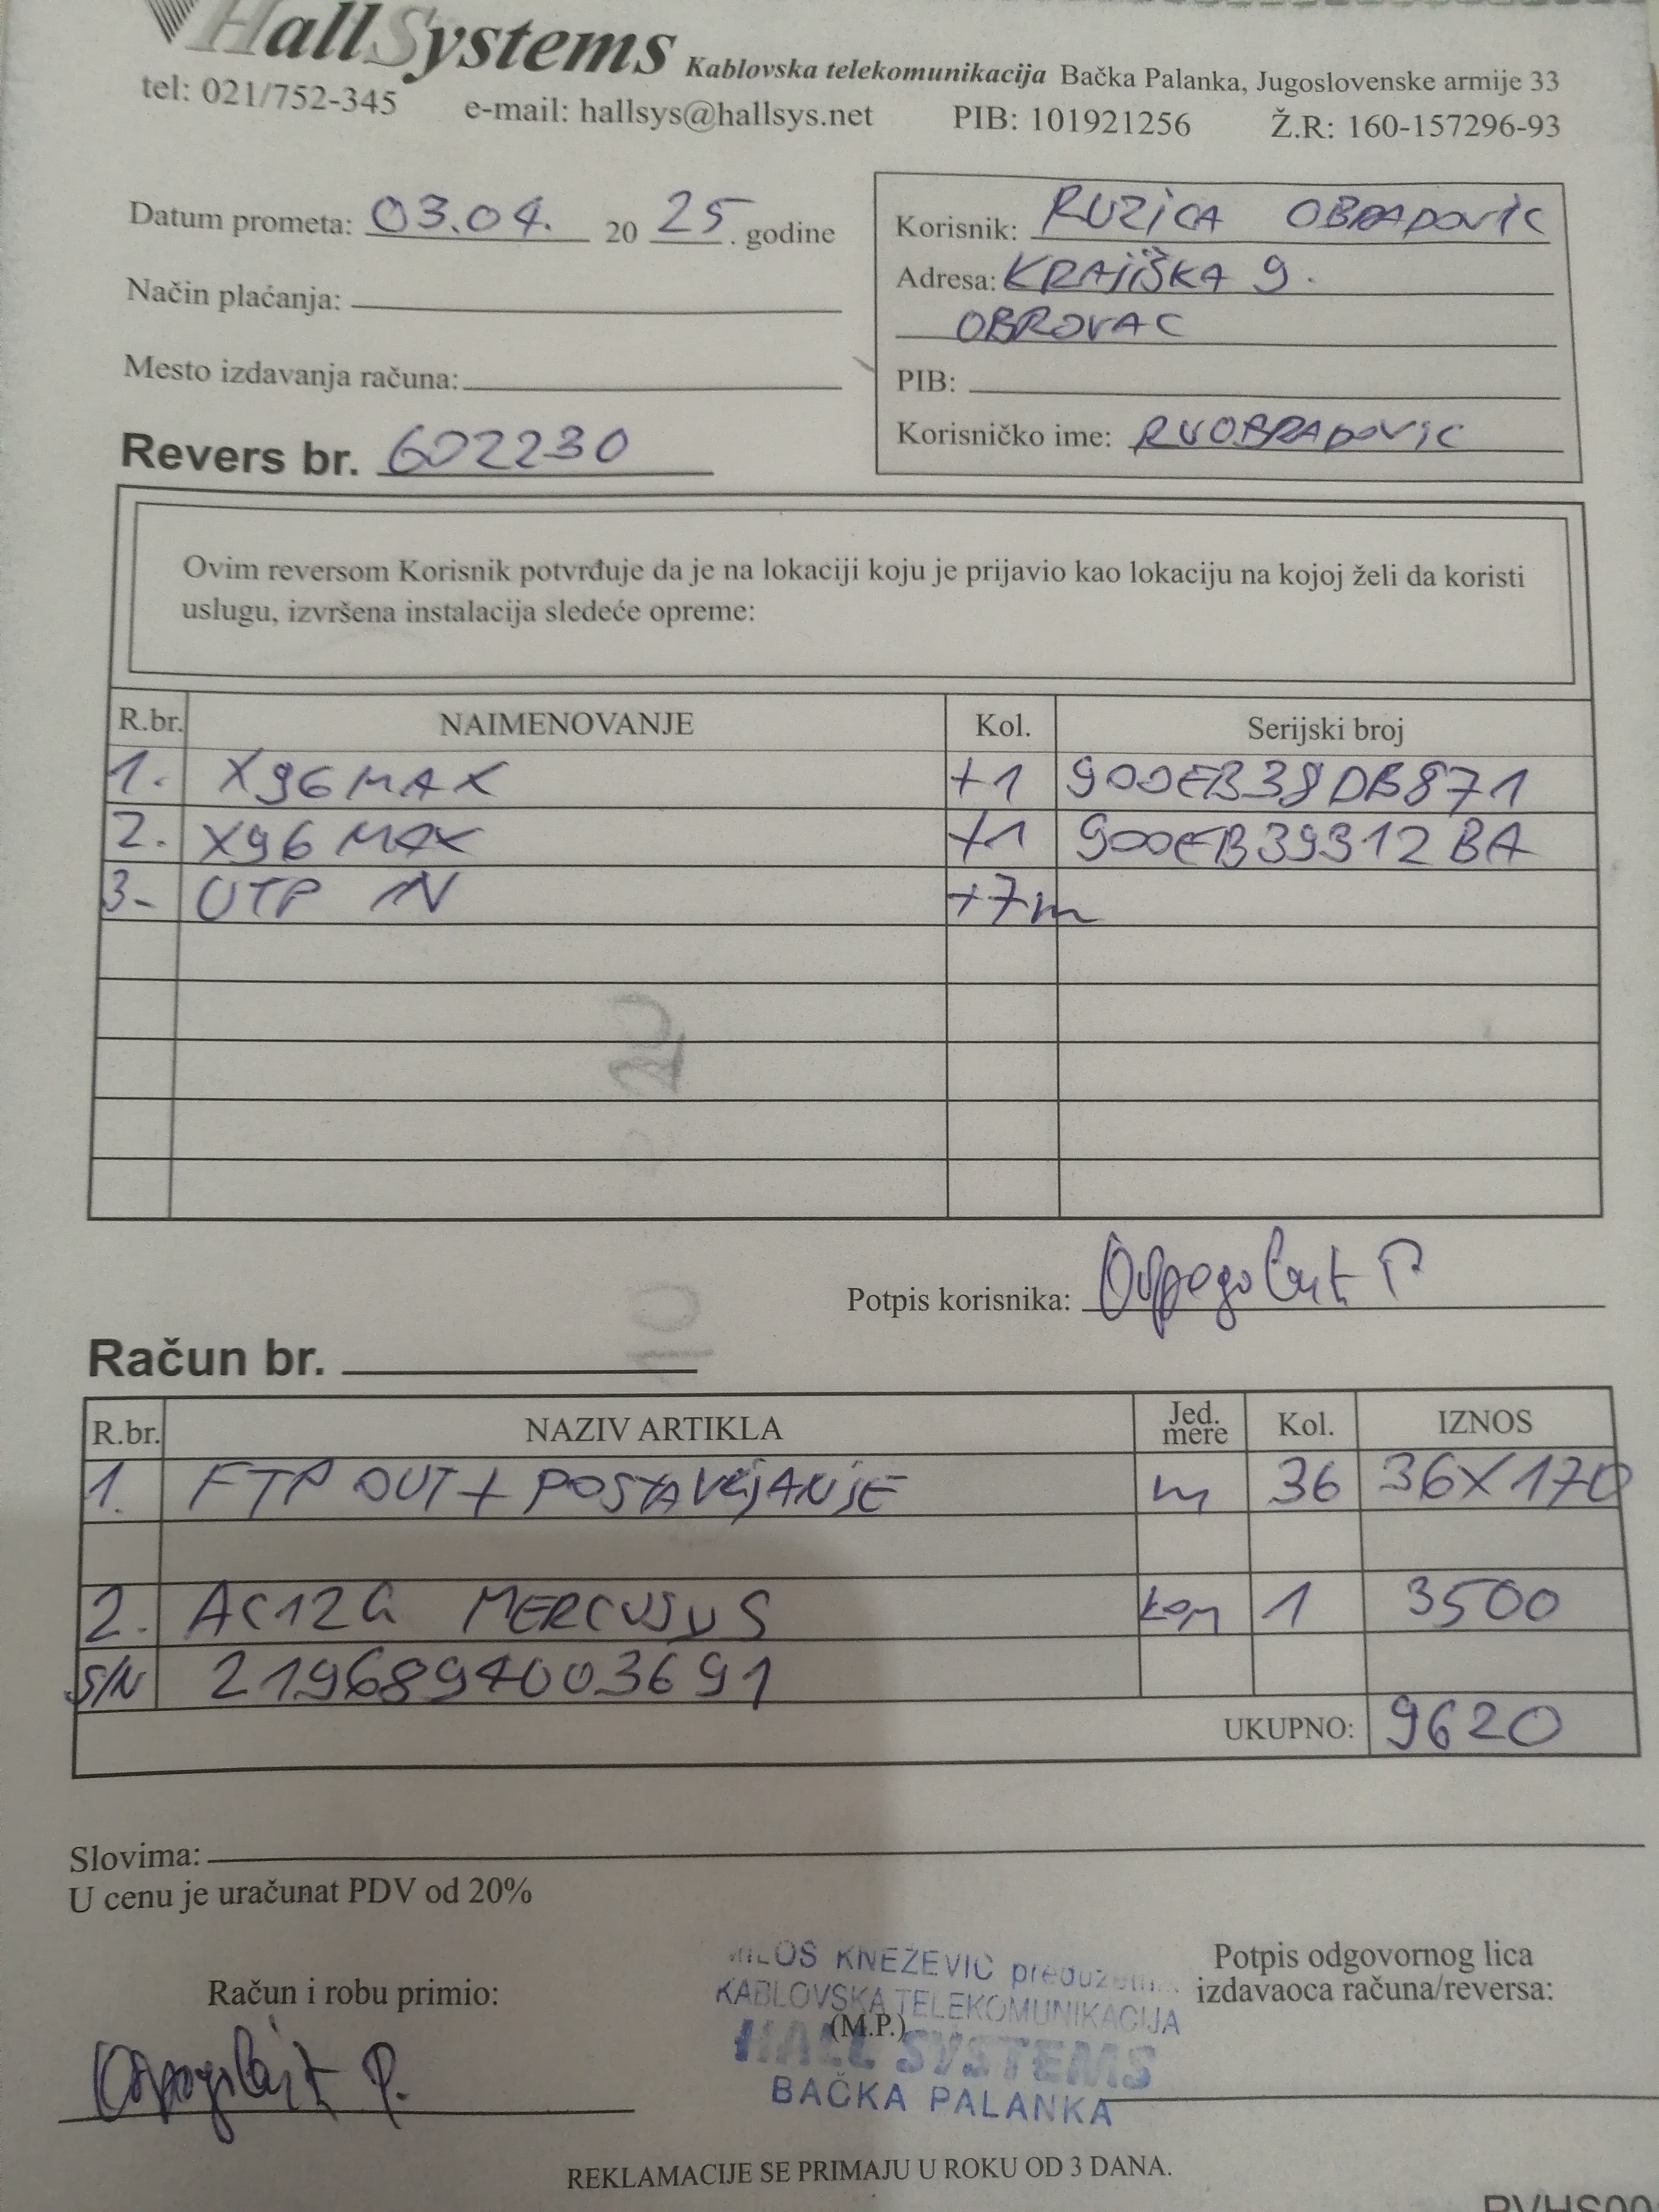 HallSystems Kablovska telekomunikacija Bačka Palanka, Jugoslovenske armije 33
tel: 021/752-345 e-mail: hallsys@hallsys.net PIB: 101921256 Ž.R: 160-157296-93
Datum prometa: 03.04. 20 25. godine
Način plaćanja:
Mesto izdavanja računa:
Revers br. 602230
Korisnik: RUZICA OBRADOVIC
Adresa: KRAJIŠKA 9.
OBROVAC
PIB:
Korisničko ime: RUOBRADOVIC
Ovim reversom Korisnik potvrđuje da je na lokaciji koju je prijavio kao lokaciju na kojoj želi da koristi
uslugu, izvršena instalacija sledeće opreme:
R.br. NAIMENOVANJE Kol. Serijski broj
1. X96 MAX +1 900EB38DB871
2. X96 MAX +1 900EB39312BA
3- UTP IN +7m
Potpis korisnika:
Račun br.
R.br. NAZIV ARTIKLA Jed. mere Kol. IZNOS
1. FTP OUT + POSTAVLJANJE m 36 36X170
2. AC12G MERCUSYS kom 1 3500
S/N 2196894003691
UKUPNO: 9620
Slovima:
U cenu je uračunat PDV od 20%
Račun i robu primio:
MILOŠ KNEŽEVIĆ preduzetnik
KABLOVSKA TELEKOMUNIKACIJA
(M.P.)
HALL SYSTEMS
BAČKA PALANKA
Potpis odgovornog lica
izdavaoca računa/reversa:
REKLAMACIJE SE PRIMAJU U ROKU OD 3 DANA.